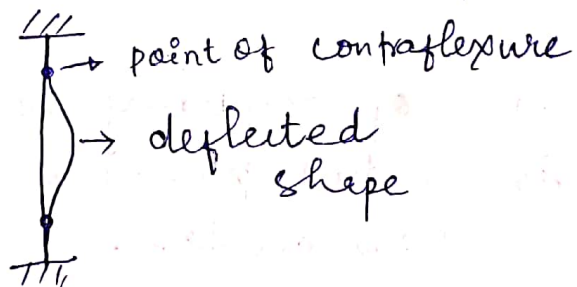 point of contraflexure
deflected
shape